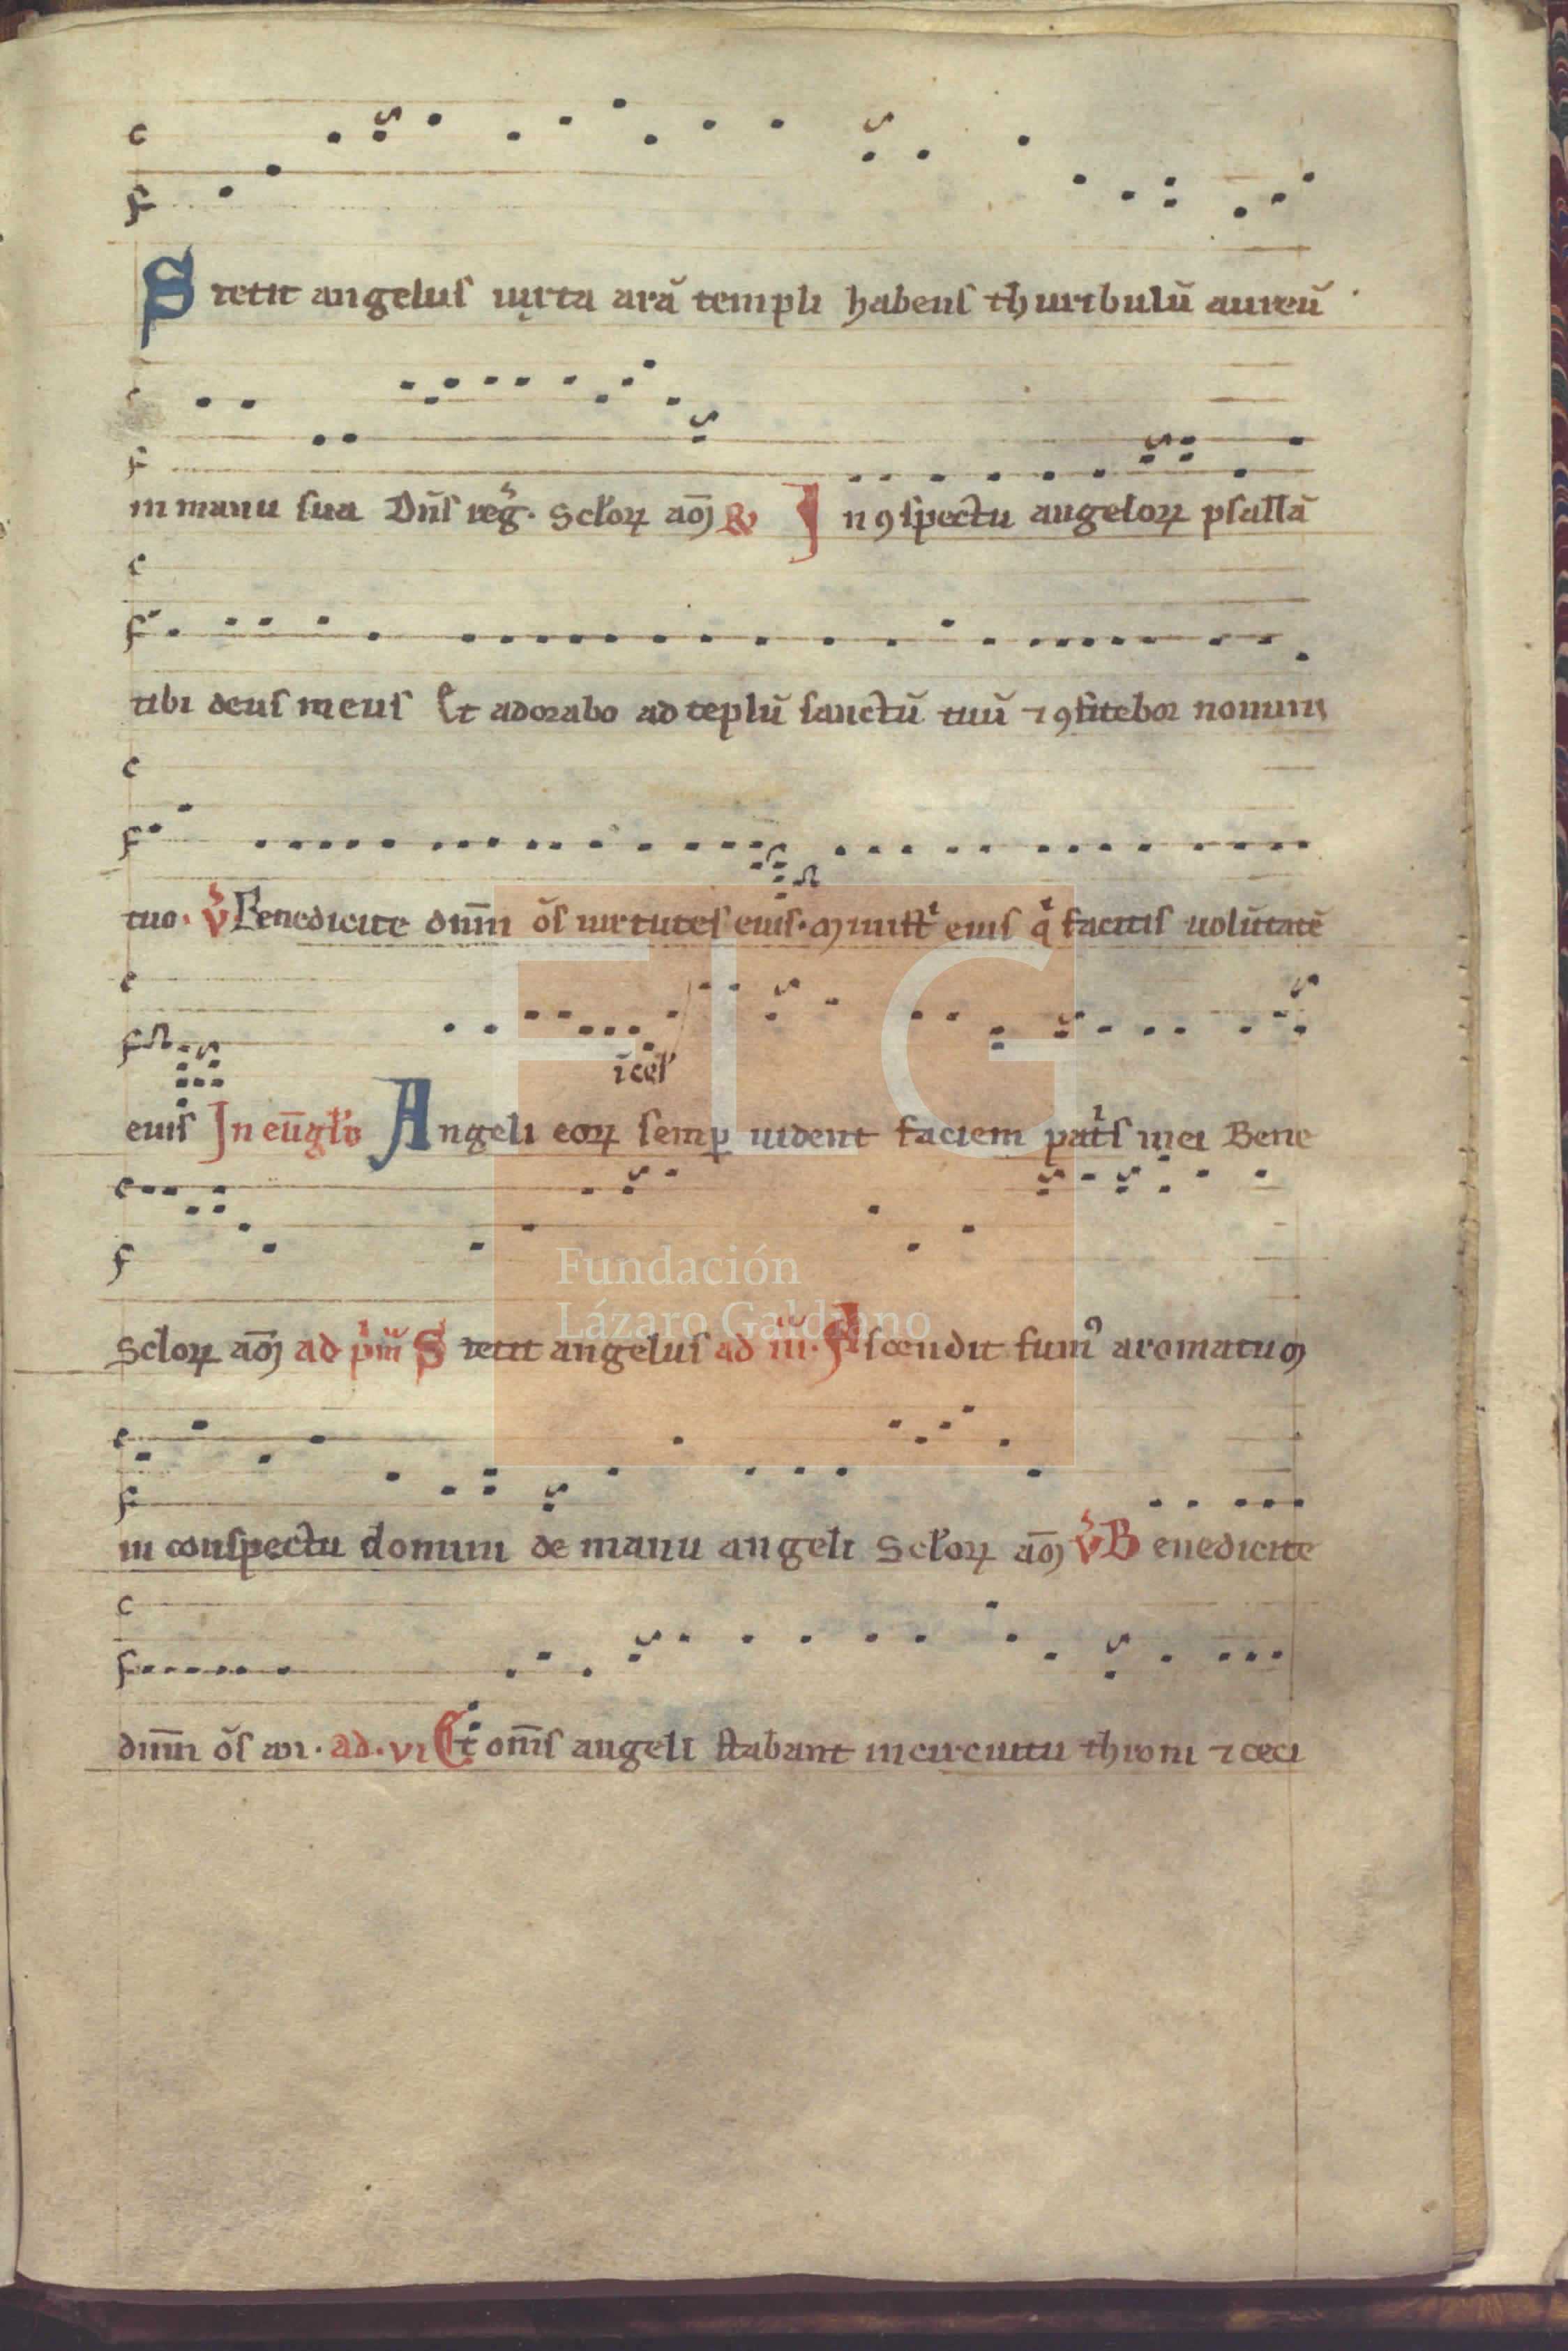 Stetit angelus iuxta arā templi habens thuribulū aureū
in manu sua Dn̄s reg̃. Sclor̄ꝝ am̄ ℟ In ꝯspectu angeloꝝ psallā
tibi deus meus Et adorabo ad teplū sanctū tuū ⁊ ꝯfitebor nomini
tuo. ℣ Benedicite dn̄m ōs uirtutes eius. ministⁱ eius qⁱ facitis uolūtatē
ī cel̄
eius In eūgl̄o Angeli eoꝝ semꝑ uident faciem patⁱs mei Bene
Scloꝝ am̄ ad pⁱm̄ Stetit angelus ad iii. Ascendit fumꝰ aromatum
in conspectu domini de manu angeli Scloꝝ am̄ ℣ Benedicite
dn̄m ōs an. ad. vi Et om̄s angeli stabant in circuitu throni ⁊ ceci
c
f
FLG
Fundación
Lázaro Galdiano